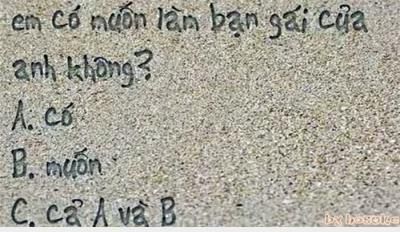 em có muốn làm bạn gái của
anh không?
A. có
B. muốn
C. cả A và B